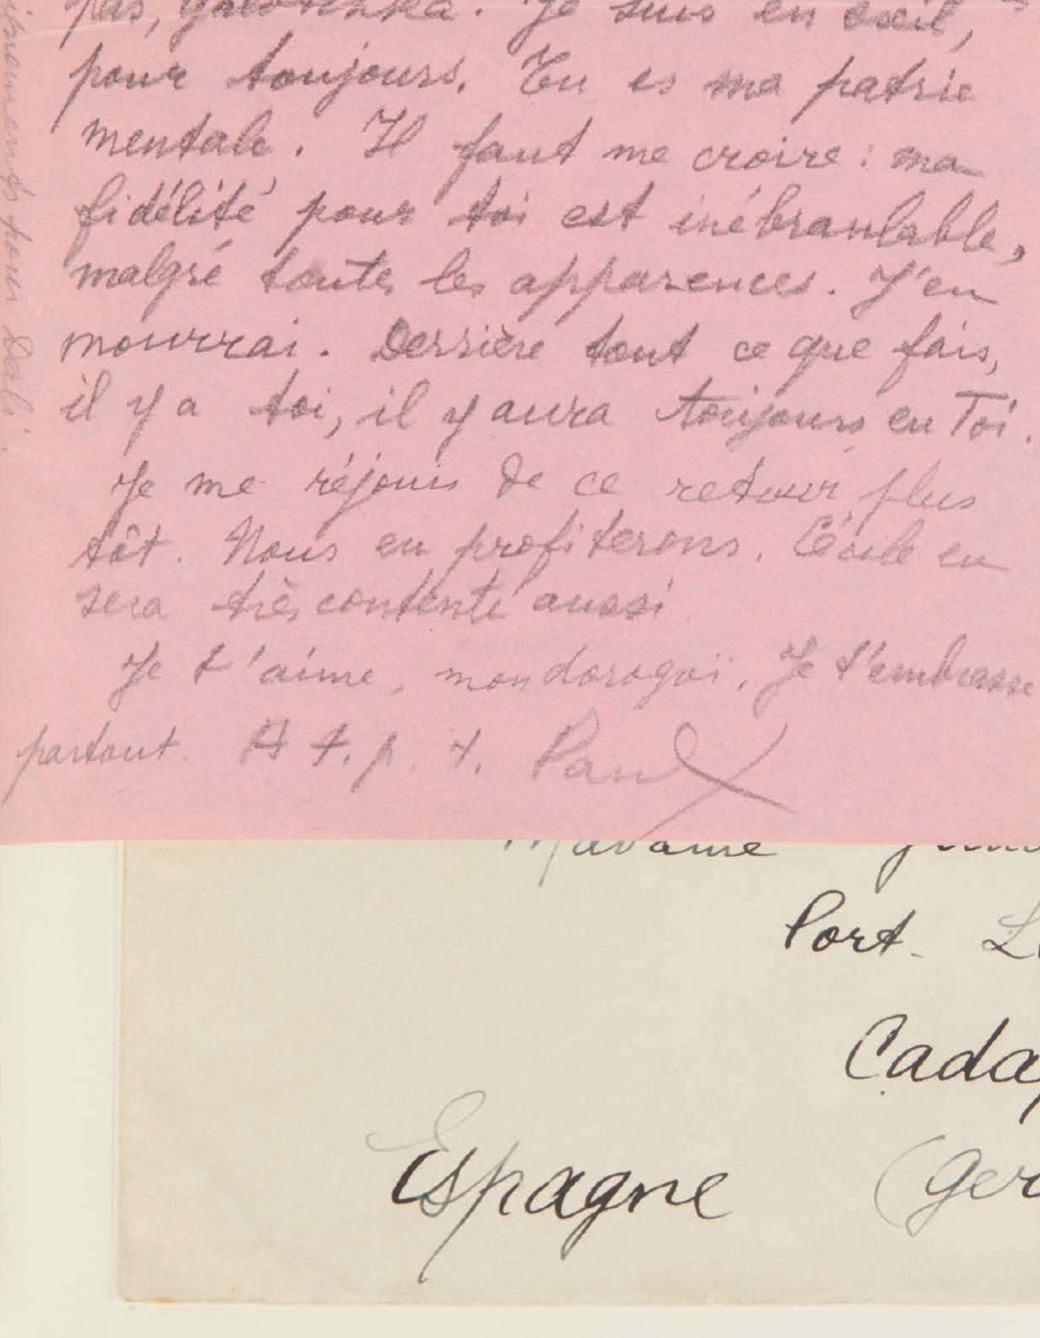 pas, Je suis en exil,
pour toujours. Tu es ma patrie
mentale. Il faut me croire : ma
fidélité pour toi est inébranlable,
malgré toutes les apparences. J'en
mourrai. Derrière tout ce que fais,
il y a toi, il y aura toujours en Toi.
Je me réjouis de ce retour plus
tôt. Nous en profiterons. Cécile en
sera très contente aussi
Je t'aime, mon dorogoï. Je t'embrasse
partout. A t. p. t. Paul
pour Dali.
Madame
Port-
Cada
Espagne (Ger